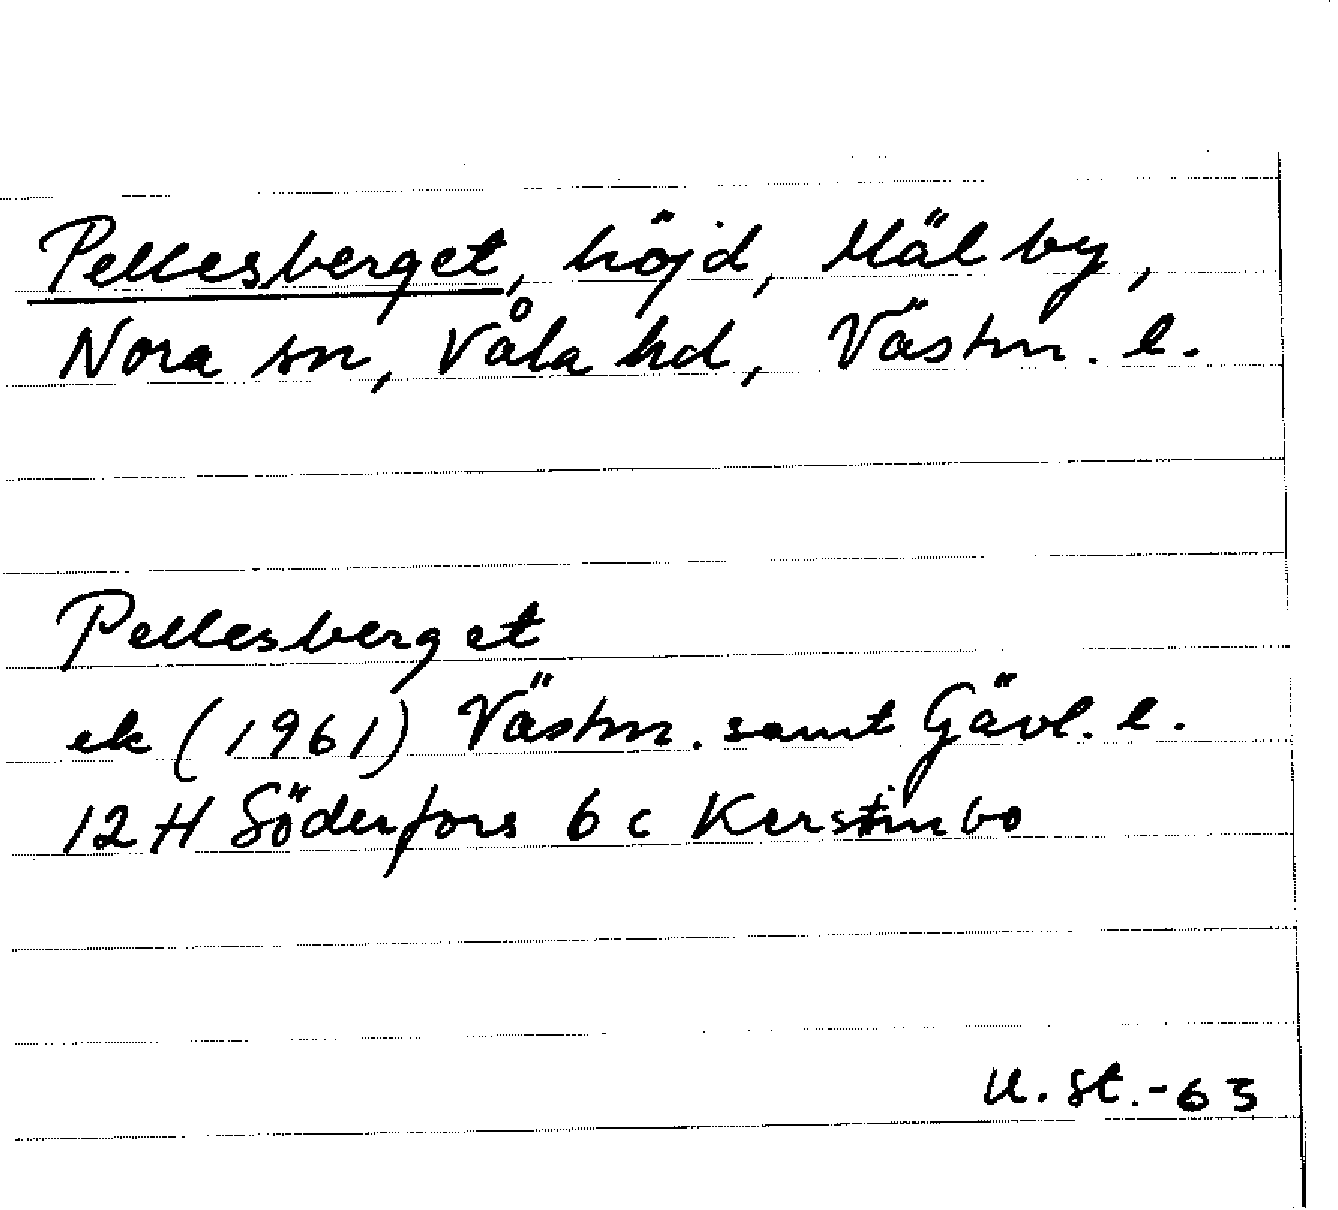 Pellesberget, höjd, Mäl by,
Nora sn, Våla hd, Västm. l.
Pellesberget
ek (1961) Västm. samt Gävl. l.
12 H Söderfors 6 c Kerstinbo
U. St. -63